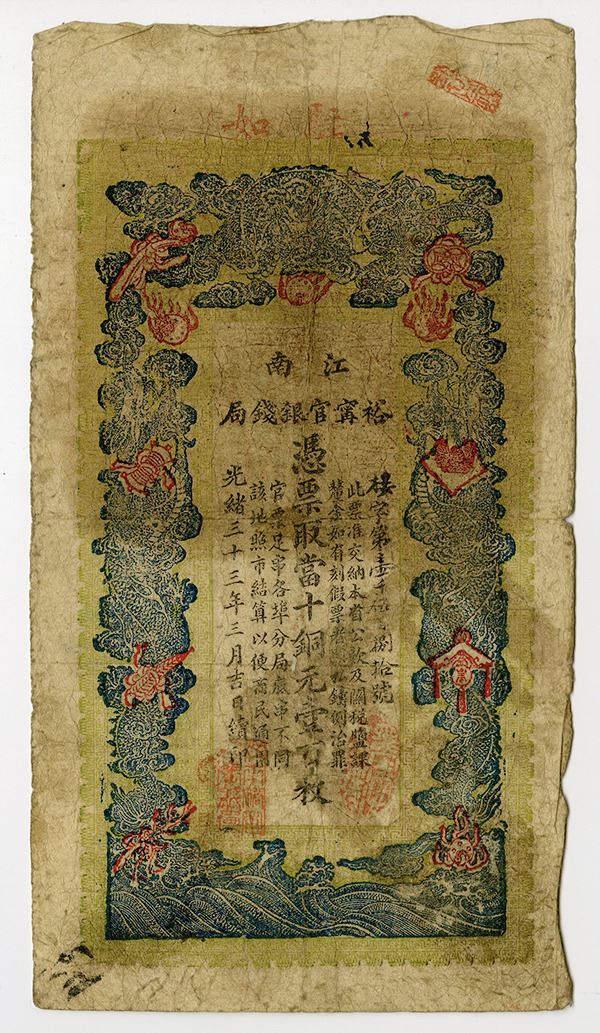 江南
裕甯官銀錢局
字第壹千捌拾號
此票准交納本省公款及關稅鹽課
釐金如有刻假票者私鑄例治罪
憑票取當十銅元壹百枚
官票足串各埠分局底串不同
該地照市結算以便商民通用
光緒三十三年三月吉日續印